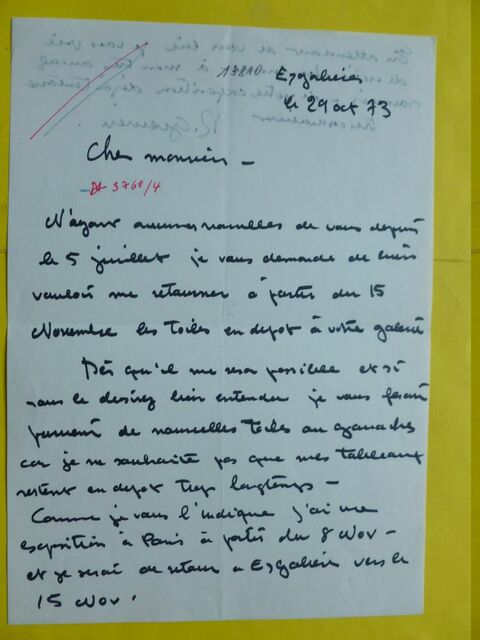 13810
Eygalières
le 29 oct 73
Cher monsieur –
DA 3760/4
N'ayant aucunes nouvelles de vous depuis
le 5 juillet je vous demande de bien
vouloir me retourner à partir du 15
Novembre les toiles en depot à votre galerie
Dès qu'il me sera possible et si
vous le desirez bien entendu je vous ferai
parvenir de nouvelles toiles ou gouaches
car je ne souhaite pas que mes tableaux
restent en depot trop longtemps –
Comme je vous l'indique j'ai une
exposition à Paris à partir du 8 Nov –
et je serai de retour à Eygalières vers le
15 Nov.